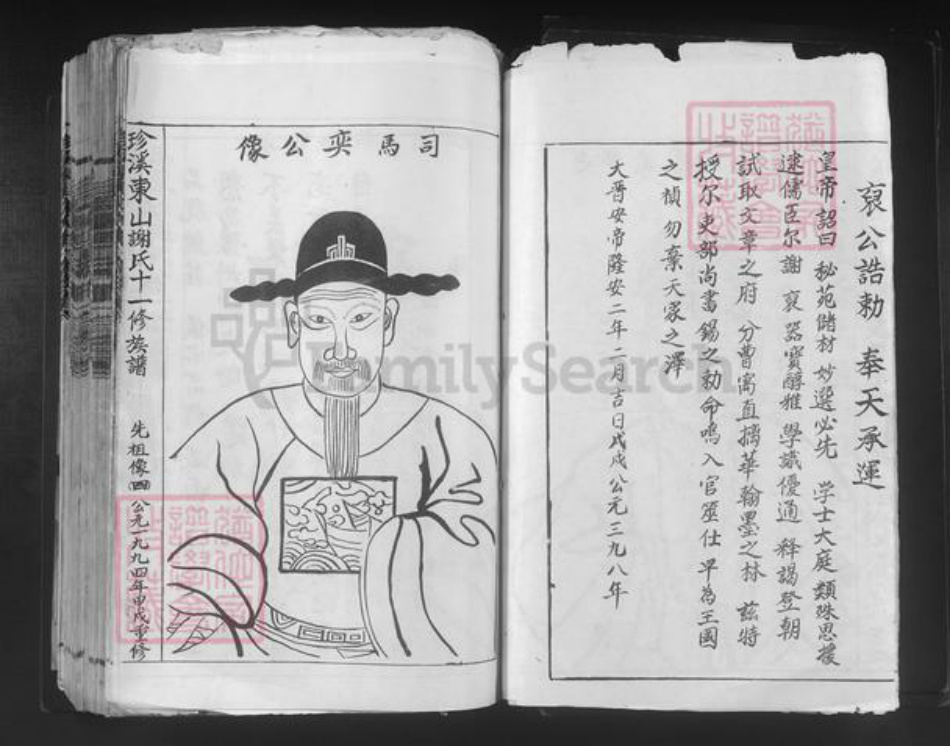 裒公誥勅 奉天承運
皇帝詔曰 秘苑儲材 妙選必先 學士大庭 類殊恩援
逮儒臣尔 謝 裒 器寳醇雅 學識優通 釋謁登朝
試取文章之府 分曹寓直摛華翰墨之林 兹特
授尔吏部尚書錫之勅命嗚入官筮仕 早為王國
之楨 勿棄天家之澤
大晋安帝隆安二年二月吉日戊戌公元三九八年
司馬奕公像
珍溪東山謝氏十一修族譜 先祖像四 公元一九九四年甲戌重修
FamilySearch